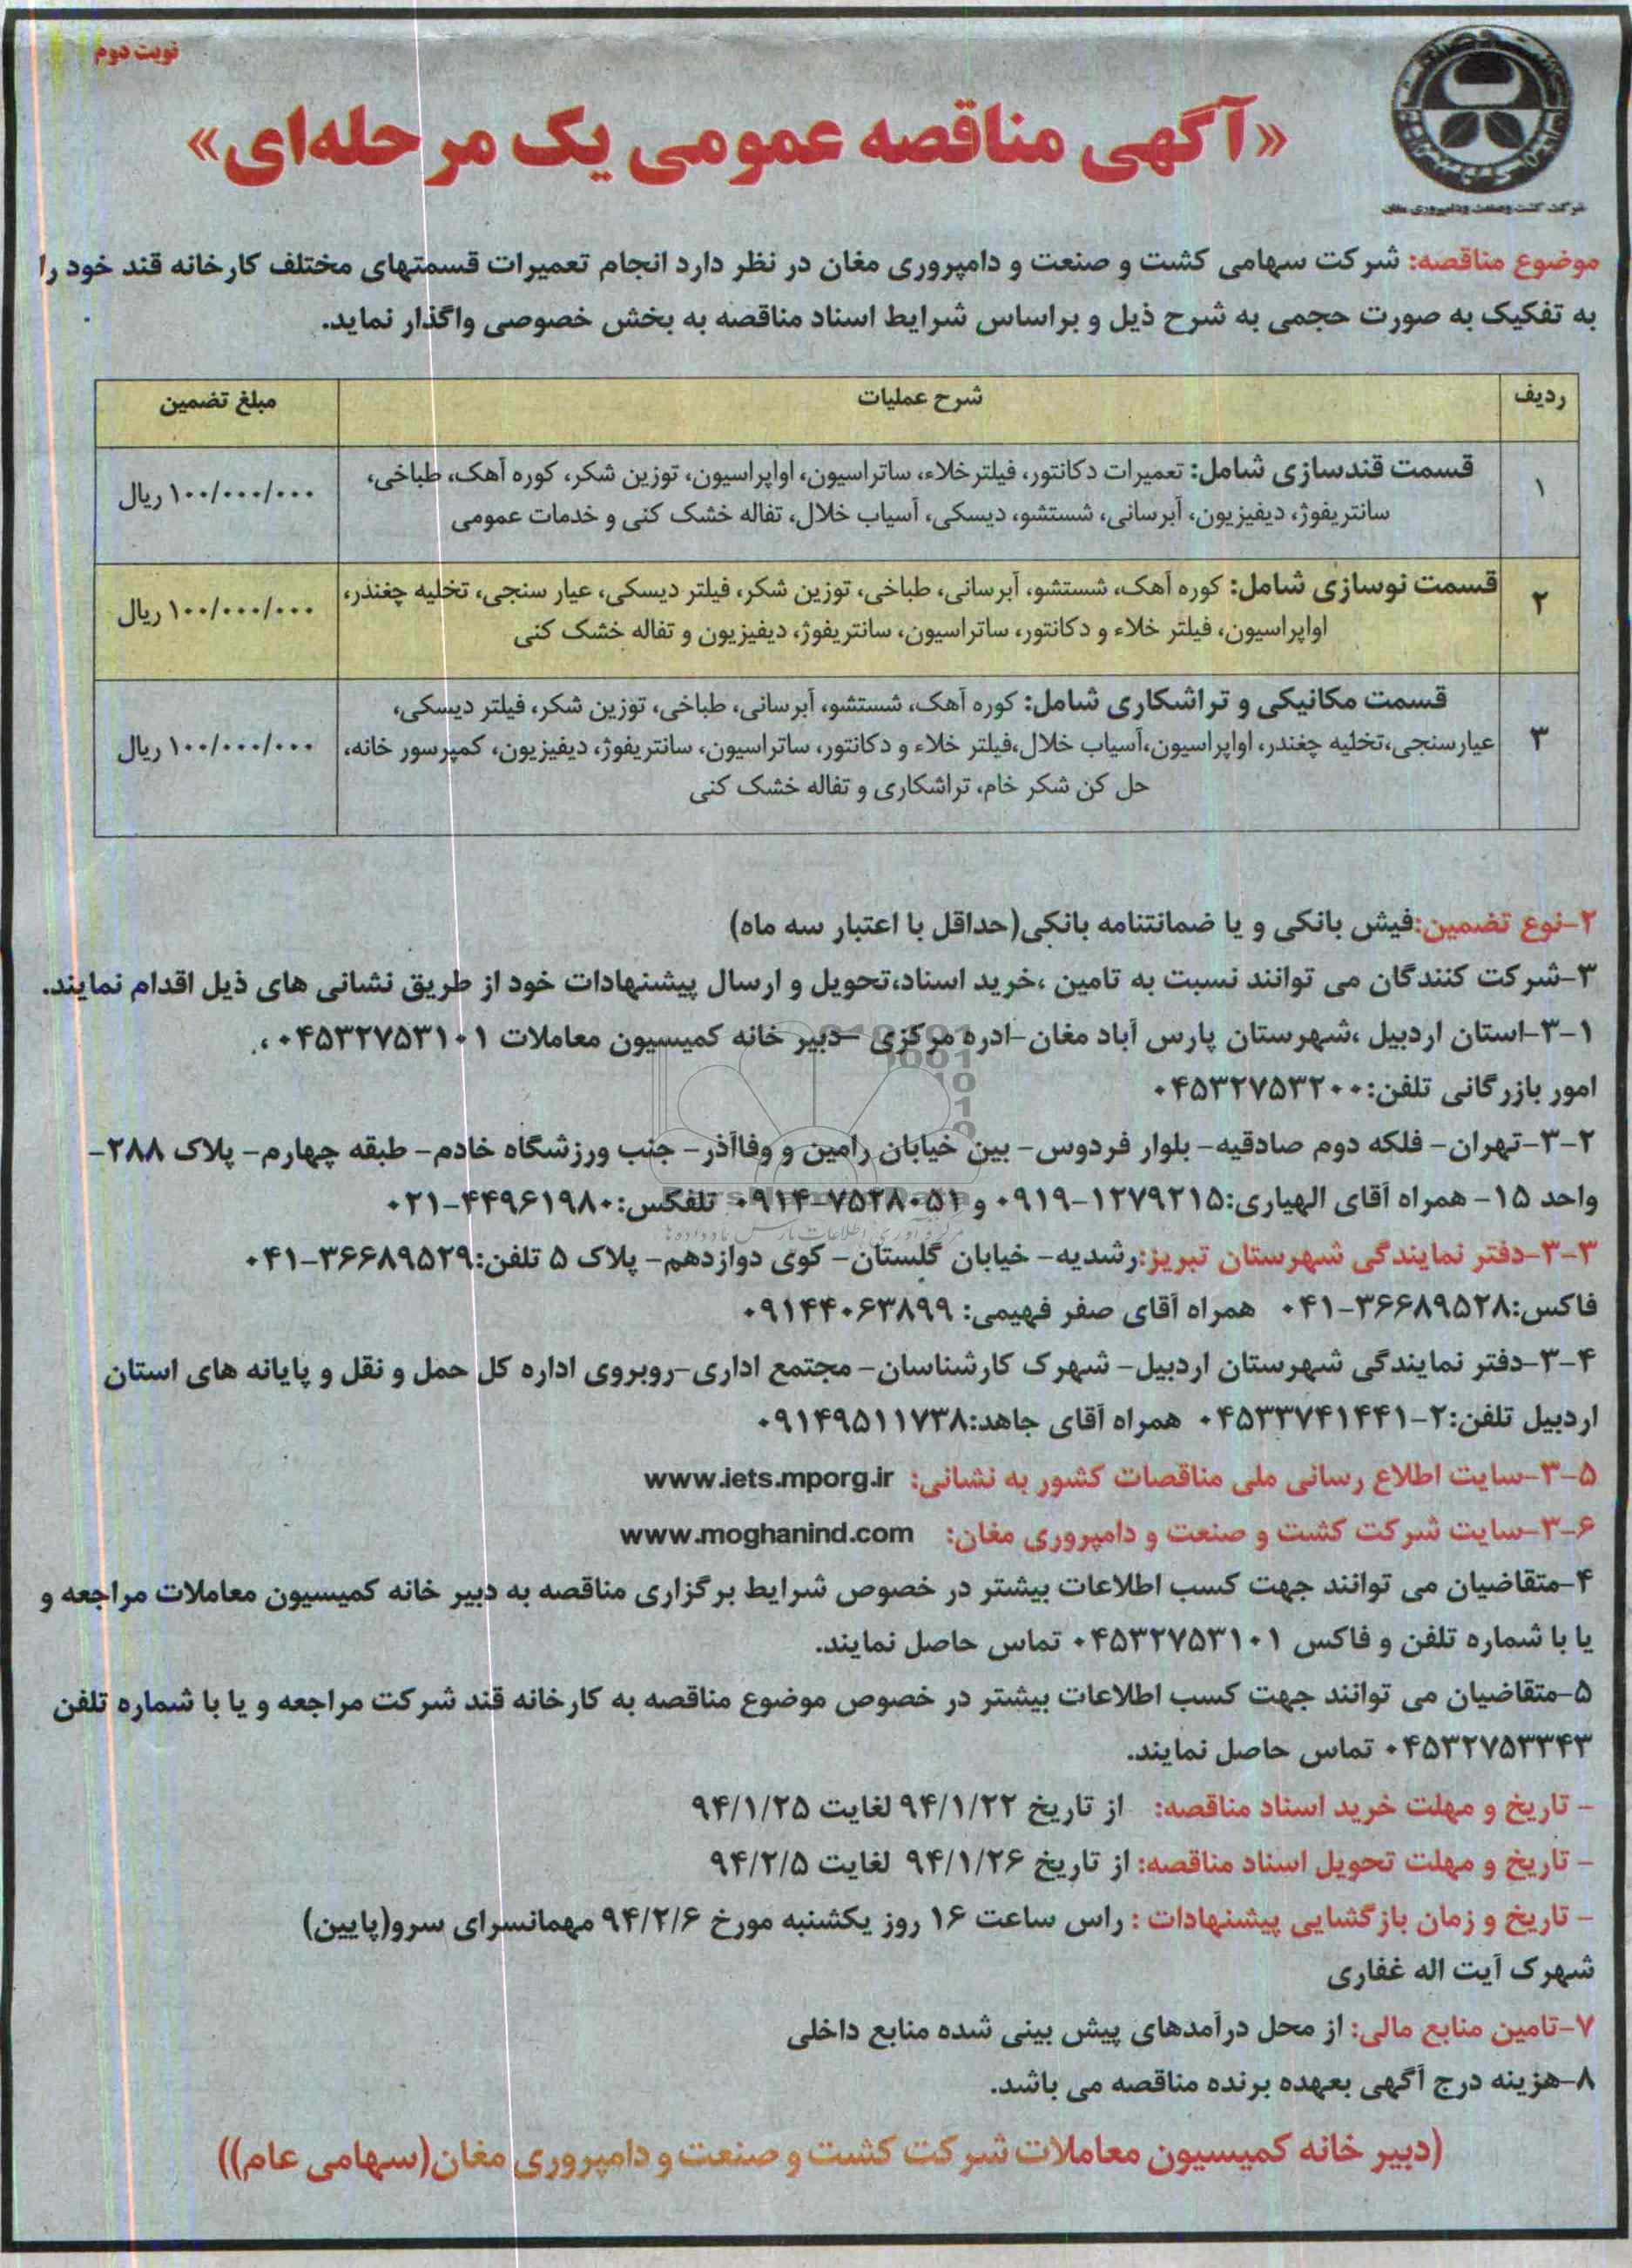 نوبت دوم
«آگهی مناقصه عمومی یک مرحله‌ای»
شرکت کشت وصنعت ودامپروری مغان
موضوع مناقصه: شرکت سهامی کشت و صنعت و دامپروری مغان در نظر دارد انجام تعمیرات قسمتهای مختلف کارخانه قند خود را
به تفکیک به صورت حجمی به شرح ذیل و براساس شرایط اسناد مناقصه به بخش خصوصی واگذار نماید.
ردیف شرح عملیات مبلغ تضمین
قسمت قندسازی شامل: تعمیرات دکانتور، فیلترخلاء، ساتراسیون، اواپراسیون، توزین شکر، کوره آهک، طباخی،
۱ ۱۰۰/۰۰۰/۰۰۰ ریال
سانتریفوژ، دیفیزیون، آبرسانی، شستشو، دیسکی، آسیاب خلال، تفاله خشک کنی و خدمات عمومی
قسمت نوسازی شامل: کوره آهک، شستشو، آبرسانی، طباخی، توزین شکر، فیلتر دیسکی، عیار سنجی، تخلیه چغندر،
۲ ۱۰۰/۰۰۰/۰۰۰ ریال
اواپراسیون، فیلتر خلاء و دکانتور، ساتراسیون، سانتریفوژ، دیفیزیون و تفاله خشک کنی
قسمت مکانیکی و تراشکاری شامل: کوره آهک، شستشو، آبرسانی، طباخی، توزین شکر، فیلتر دیسکی،
۳ عیارسنجی،تخلیه چغندر، اواپراسیون،آسیاب خلال،فیلتر خلاء و دکانتور، ساتراسیون، سانتریفوژ، دیفیزیون، کمپرسور خانه، ۱۰۰/۰۰۰/۰۰۰ ریال
حل کن شکر خام، تراشکاری و تفاله خشک کنی
۲-نوع تضمین:فیش بانکی و یا ضمانتنامه بانکی(حداقل با اعتبار سه ماه)
۳-شرکت کنندگان می توانند نسبت به تامین ،خرید اسناد،تحویل و ارسال پیشنهادات خود از طریق نشانی های ذیل اقدام نمایند.
۳-۱-استان اردبیل ،شهرستان پارس آباد مغان-ادره مرکزی -دبیر خانه کمیسیون معاملات ۰۴۵۳۲۷۵۳۱۰۱ ،
امور بازرگانی تلفن:۰۴۵۳۲۷۵۳۲۰۰
۳-۲-تهران- فلکه دوم صادقیه- بلوار فردوس- بین خیابان رامین و وفاآذر- جنب ورزشگاه خادم- طبقه چهارم- پلاک ۲۸۸-
واحد ۱۵- همراه آقای الهیاری:۱۲۷۹۲۱۵-۰۹۱۹ و ۷۵۲۸۰۵۱-۰۹۱۴ تلفکس:۴۴۹۶۱۹۸۰-۰۲۱
۳-۳-دفتر نمایندگی شهرستان تبریز:رشدیه- خیابان گلستان- کوی دوازدهم- پلاک ۵ تلفن:۳۶۶۸۹۵۲۹-۰۴۱
فاکس:۳۶۶۸۹۵۲۸-۰۴۱ همراه آقای صفر فهیمی: ۰۹۱۴۴۰۶۳۸۹۹
۳-۴-دفتر نمایندگی شهرستان اردبیل- شهرک کارشناسان- مجتمع اداری-روبروی اداره کل حمل و نقل و پایانه های استان
اردبیل تلفن:۲-۰۴۵۳۳۷۴۱۴۴۱ همراه آقای جاهد:۰۹۱۴۹۵۱۱۷۳۸
۳-۵-سایت اطلاع رسانی ملی مناقصات کشور به نشانی: www.iets.mporg.ir
۳-۶-سایت شرکت کشت و صنعت و دامپروری مغان: www.moghanind.com
۴-متقاضیان می توانند جهت کسب اطلاعات بیشتر در خصوص شرایط برگزاری مناقصه به دبیر خانه کمیسیون معاملات مراجعه و
یا با شماره تلفن و فاکس ۰۴۵۳۲۷۵۳۱۰۱ تماس حاصل نمایند.
۵-متقاضیان می توانند جهت کسب اطلاعات بیشتر در خصوص موضوع مناقصه به کارخانه قند شرکت مراجعه و یا با شماره تلفن
۰۴۵۳۲۷۵۳۳۴۳ تماس حاصل نمایند.
- تاریخ و مهلت خرید اسناد مناقصه: از تاریخ ۹۴/۱/۲۲ لغایت ۹۴/۱/۲۵
- تاریخ و مهلت تحویل اسناد مناقصه: از تاریخ ۹۴/۱/۲۶ لغایت ۹۴/۲/۵
- تاریخ و زمان بازگشایی پیشنهادات : راس ساعت ۱۶ روز یکشنبه مورخ ۹۴/۲/۶ مهمانسرای سرو(پایین)
شهرک آیت اله غفاری
۷-تامین منابع مالی: از محل درآمدهای پیش بینی شده منابع داخلی
۸-هزینه درج آگهی بعهده برنده مناقصه می باشد.
(دبیر خانه کمیسیون معاملات شرکت کشت و صنعت و دامپروری مغان(سهامی عام))